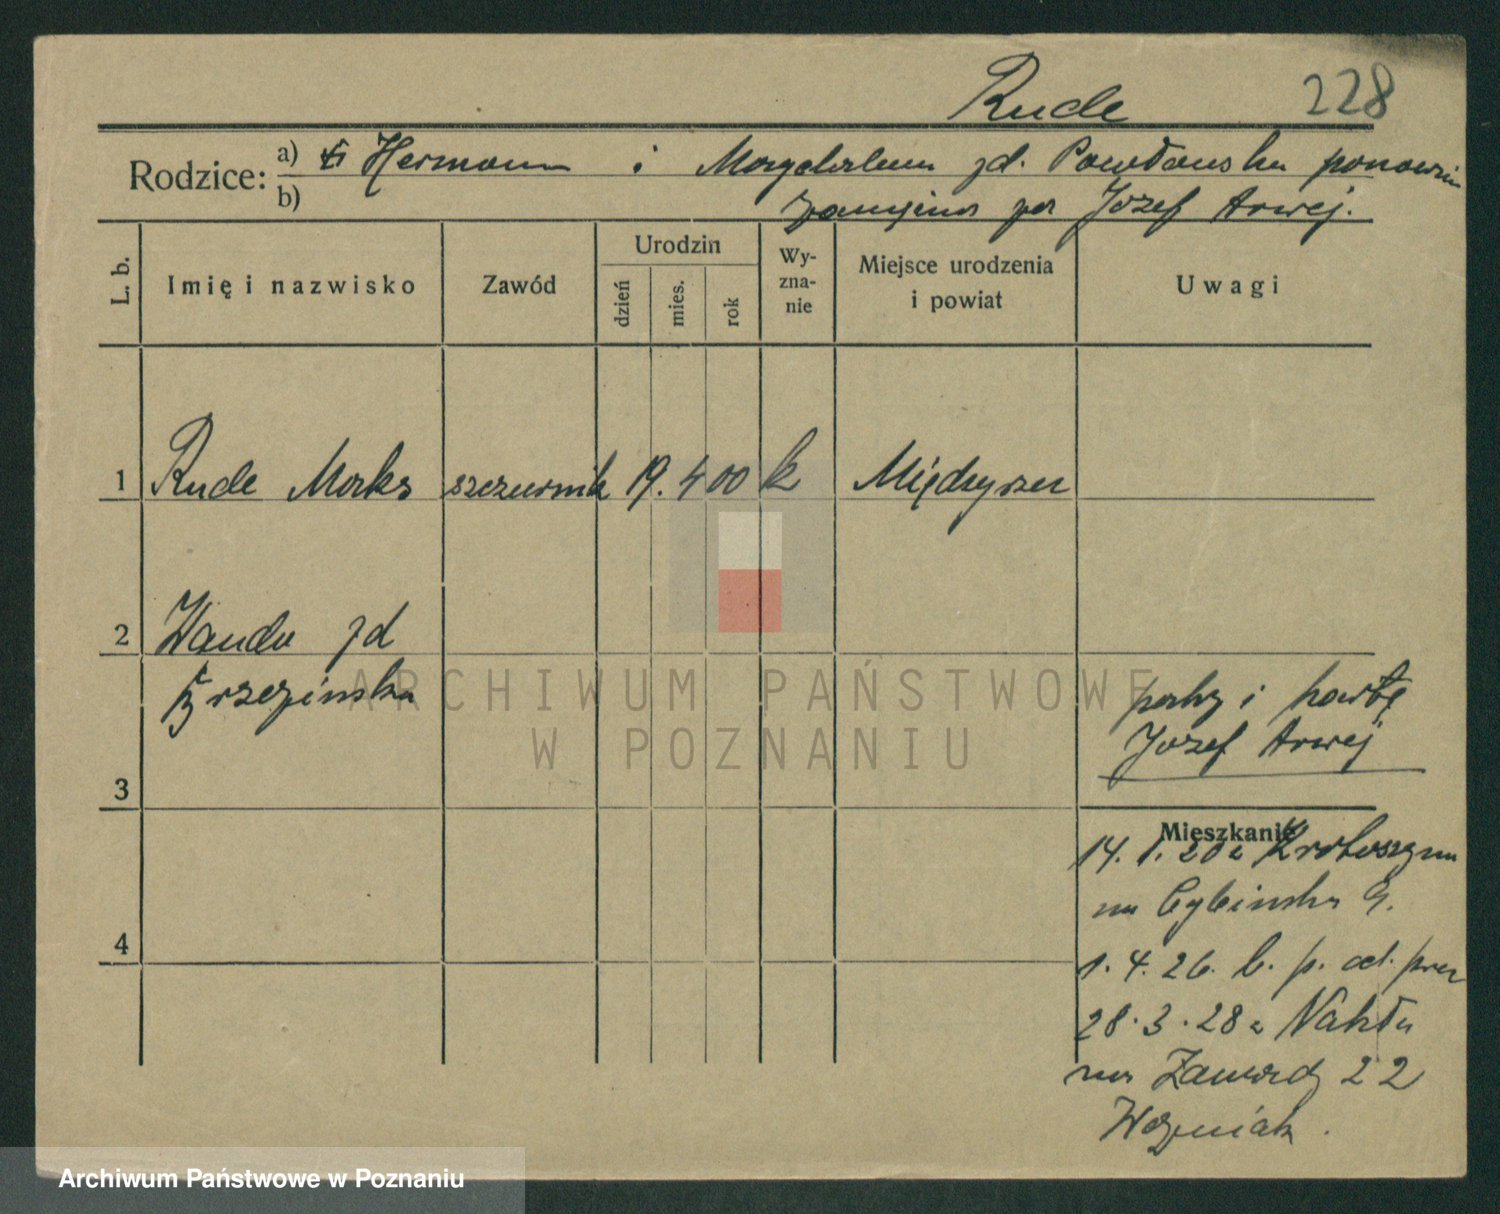 Rude 228
Rodzice: a) Hermann i Magdalena zd. Pawłowska ponownie
b) zamężna za Józef Arwej.
L. b. Imię i nazwisko Zawód Urodzin dzień mies. rok Wy-zna-nie Miejsce urodzenia i powiat Uwagi
1 Rude Maks 19. 4 00 k Międzyrzec
2 Wanda zd
Brzezińska
patrz i kartę
Józef Arwej
3
Mieszkanie
14. 1. 20 z Krotoszyna
na Cybińska 9.
4
1. 4. 26. b. p. od. prez
28. 3. 28 z Nakła
na Zawady 22
Woźniak.
ARCHIWUM PAŃSTWOWE
W POZNANIU
Archiwum Państwowe w Poznaniu